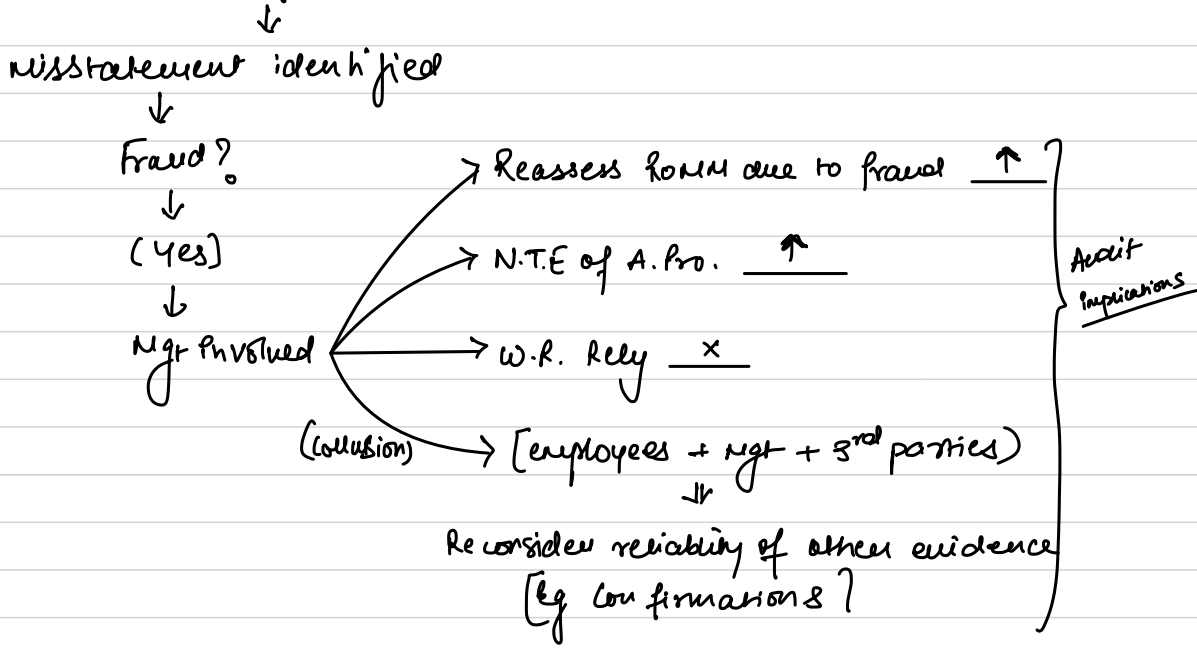 ↓
Misstatement identified
↓
Fraud?
↓
(Yes]
↓
Mgt involved
Reassess ROMM due to fraud ↑
N.T.E of A. Pro. ↑
W.R. Rely ×
(collusion)
[employees + Mgt + 3rd parties)
⇓
Reconsider reliability of other evidence
[Eg confirmations]
Audit
implications